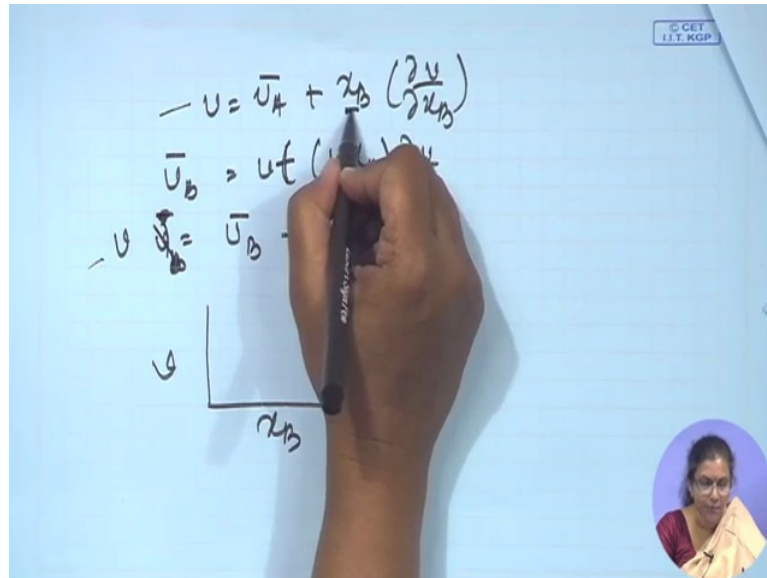 © CET
I.I.T. KGP
— v = v̄_A + x_B (∂v/∂x_B)
v̄_B = v +
— v = v̄_B -
v
x_B